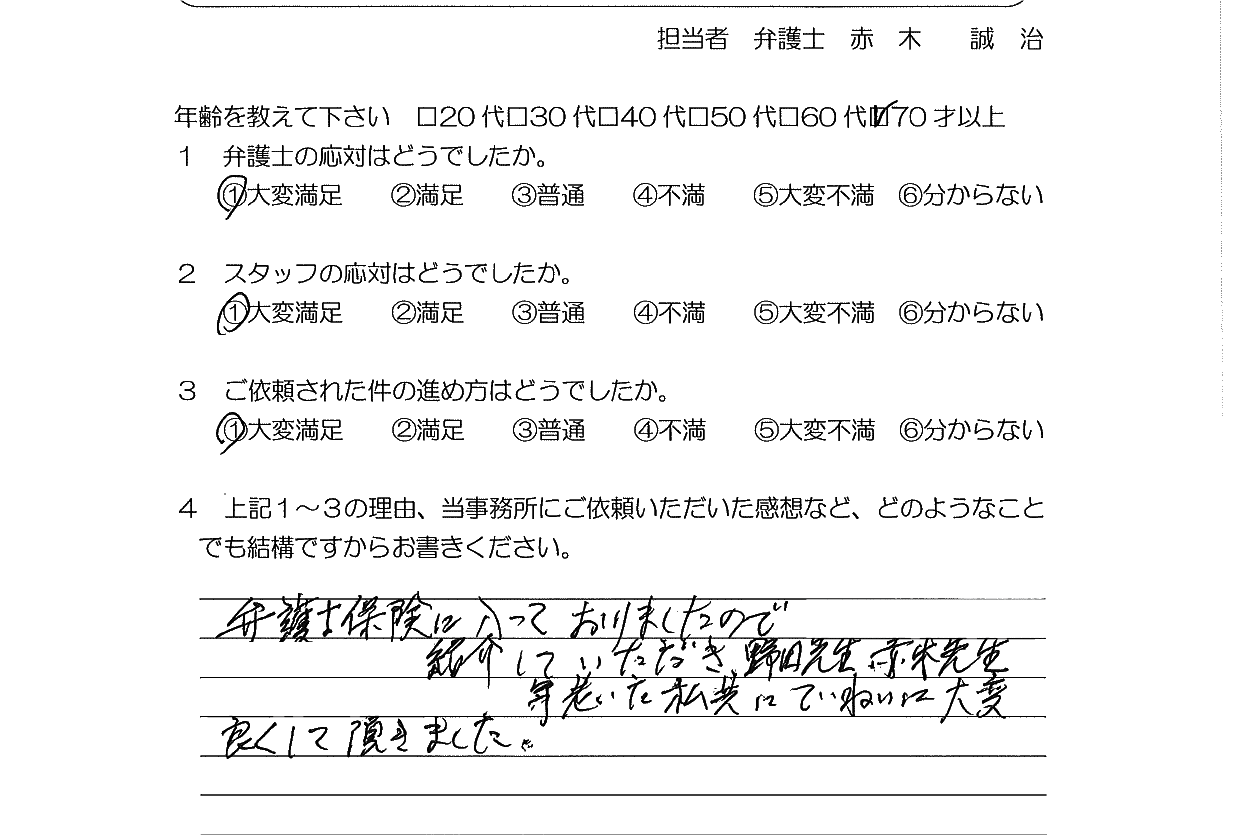 担当者　弁護士　赤　木　　誠　治
年齢を教えて下さい　□20代□30代□40代□50代□60代☑70才以上
１　弁護士の応対はどうでしたか。
①大変満足　　②満足　　③普通　　④不満　　⑤大変不満　⑥分からない
２　スタッフの応対はどうでしたか。
①大変満足　　②満足　　③普通　　④不満　　⑤大変不満　⑥分からない
３　ご依頼された件の進め方はどうでしたか。
①大変満足　　②満足　　③普通　　④不満　　⑤大変不満　⑥分からない
４　上記１～３の理由、当事務所にご依頼いただいた感想など、どのようなこと
でも結構ですからお書きください。
弁護士保険に入っておりましたので
紹介していただき、野田先生 赤木先生
年老いた私共にていねいに大変
良くして頂きました。